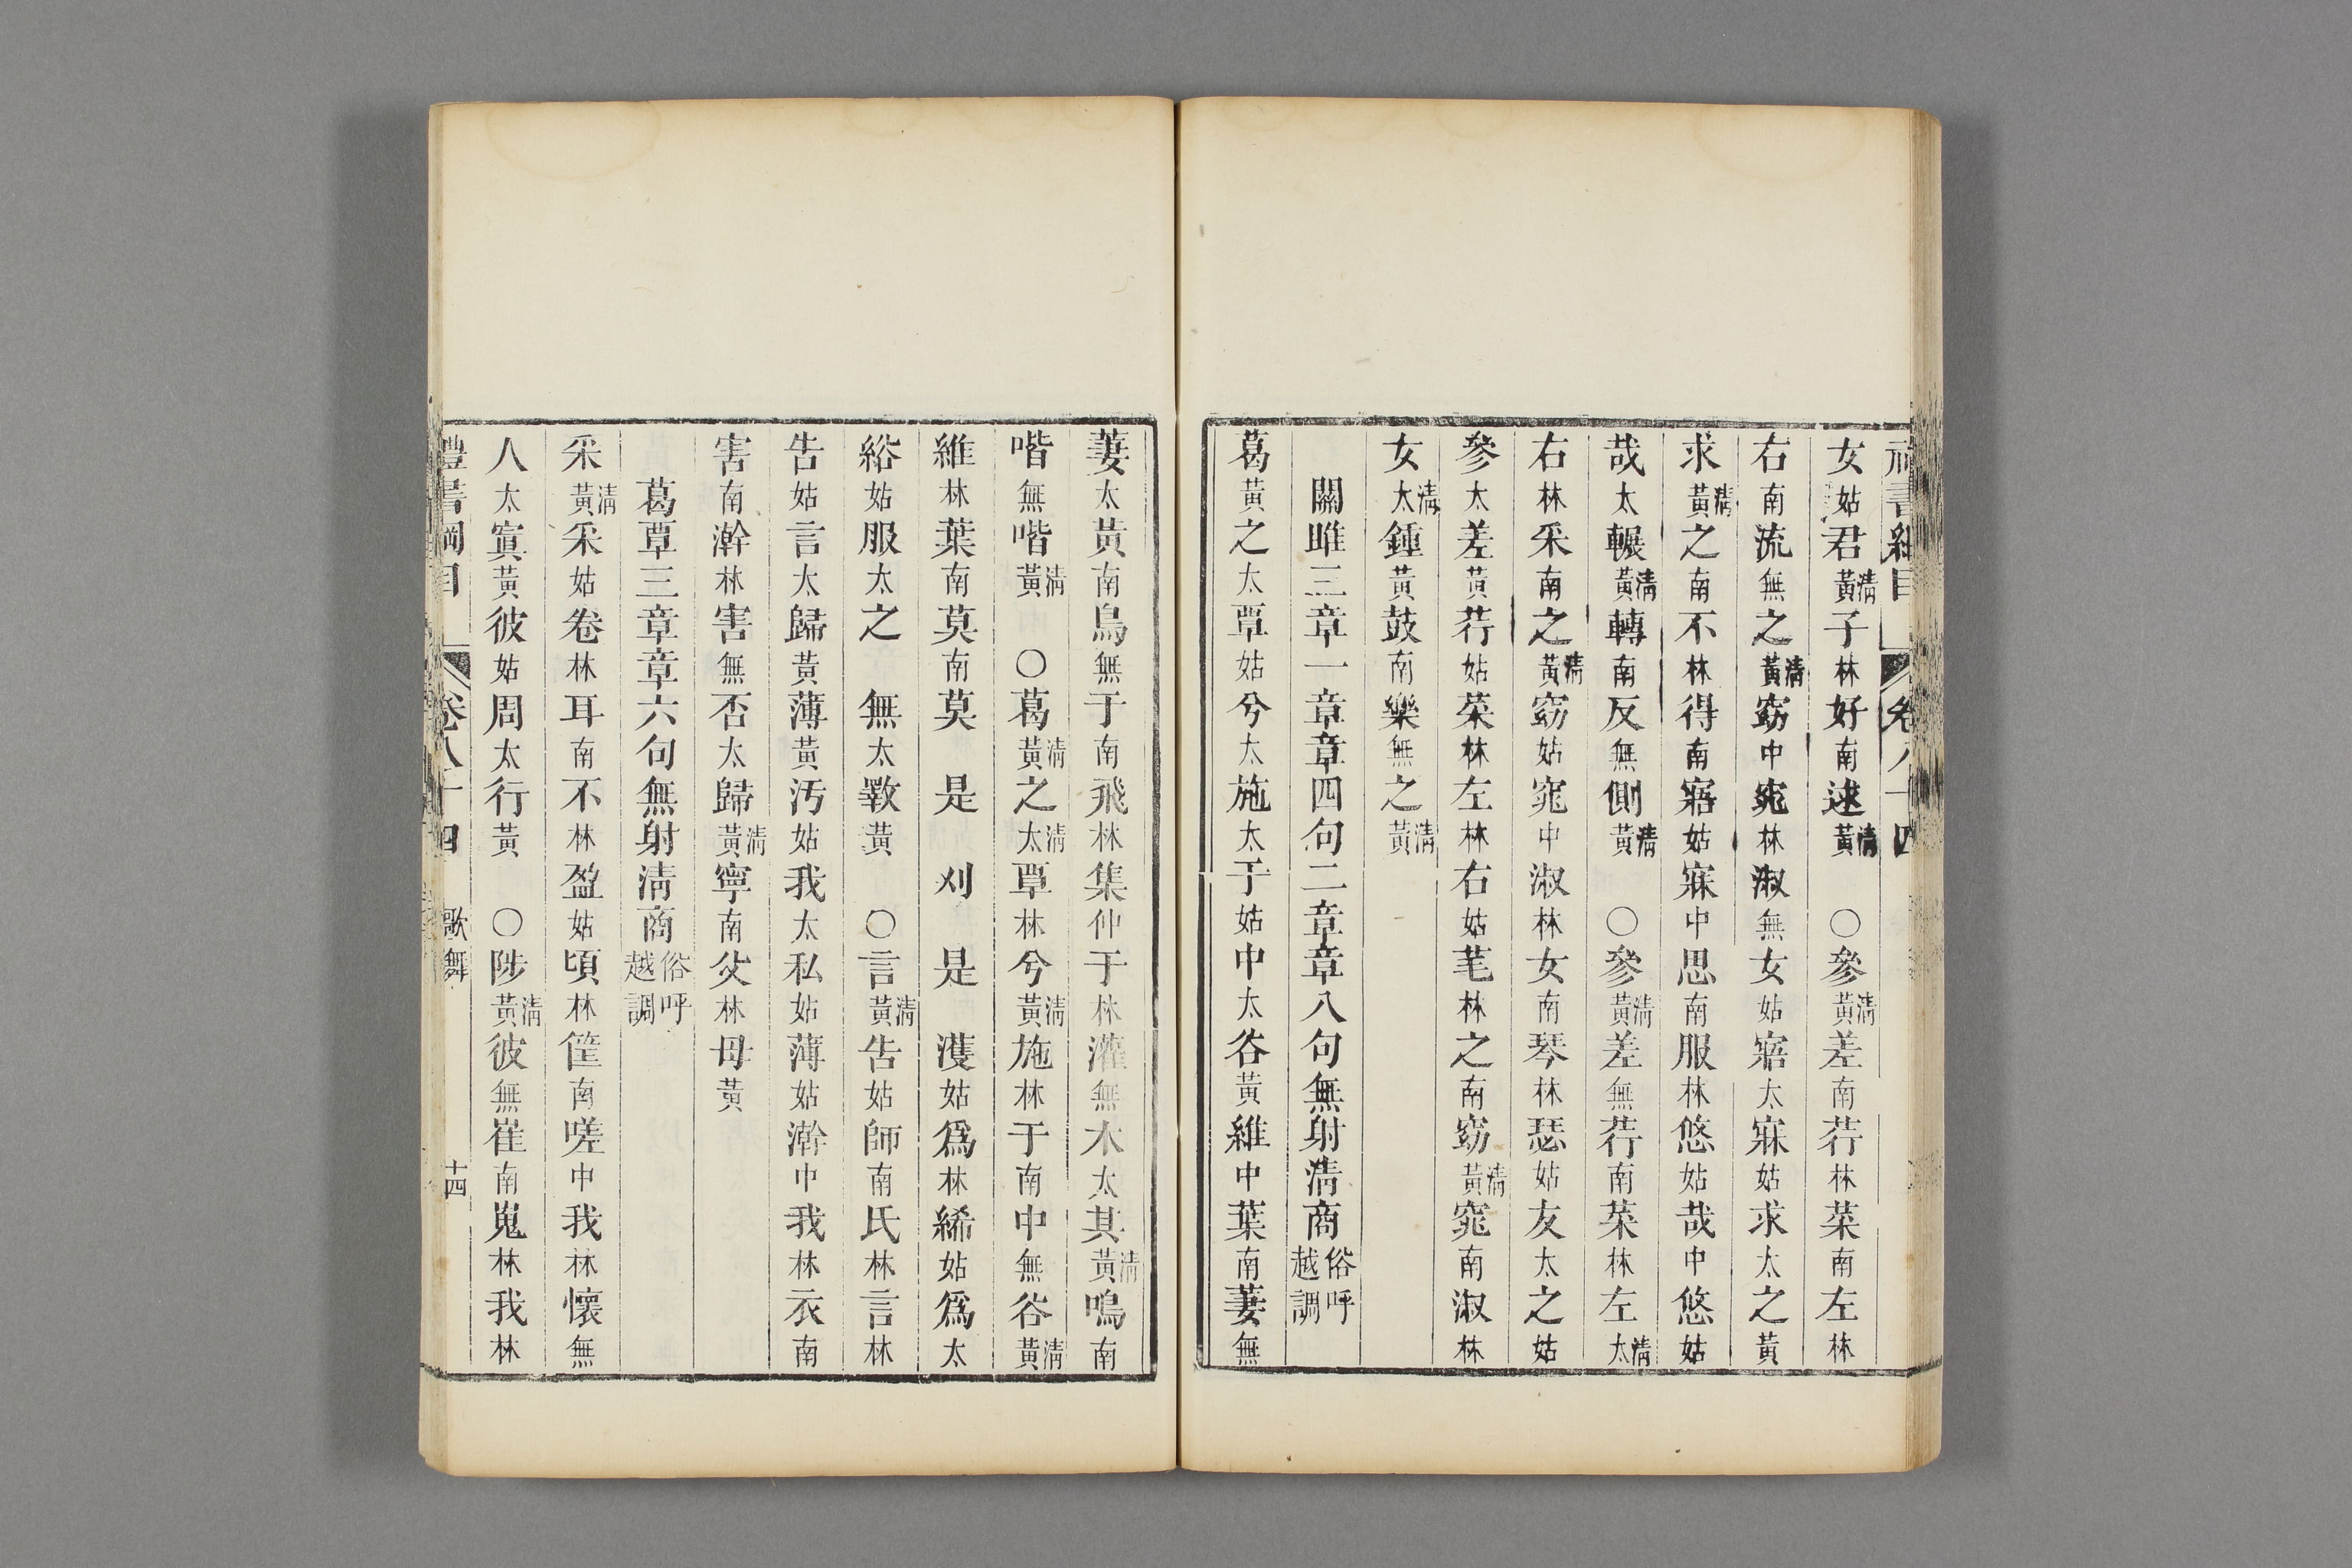 禮書綱目 卷八十四
女姑君清黃子林好南逑清黃 ○參清黃差南荇林菜南左林
右南流無之清黃窈中窕林淑無女姑寤太寐姑求太之黃
求清黃之南不林得南寤姑寐中思南服林悠姑哉中悠姑
哉太輾清黃轉南反無側清黃 ○參清黃差無荇南菜林左清太
右林采南之清黃窈姑窕中淑林女南琴林瑟姑友太之姑
參太差黃荇姑菜林左林右姑芼林之南窈清黃窕南淑林
女清太鍾黃鼓南樂無之清黃
關雎三章一章章四句二章章八句無射清商俗呼越調
葛黃之太覃姑兮太施太于姑中太谷黃維中葉南萋無
萋太黃南鳥無于南飛林集仲于林灌無木太其清黃鳴南
喈無喈清黃 ○葛清黃之清太覃林兮清黃施林于南中無谷清黃
維林葉南莫南莫 是 刈 是 濩姑爲林絺姑爲太
綌姑服太之 無太斁黃 ○言清黃告姑師南氏林言林
告姑言太歸黃薄黃汚姑我太私姑薄姑澣中我林衣南
害南澣林害無否太歸清黃寧南父林母黃
葛覃三章章六句無射清商俗呼越調
采清黃采姑卷林耳南不林盈姑頃林筐南嗟中我林懷無
人太寘黃彼姑周太行黃 ○陟清黃彼無崔南嵬林我林
禮書綱目 卷八十四 歌舞 十四